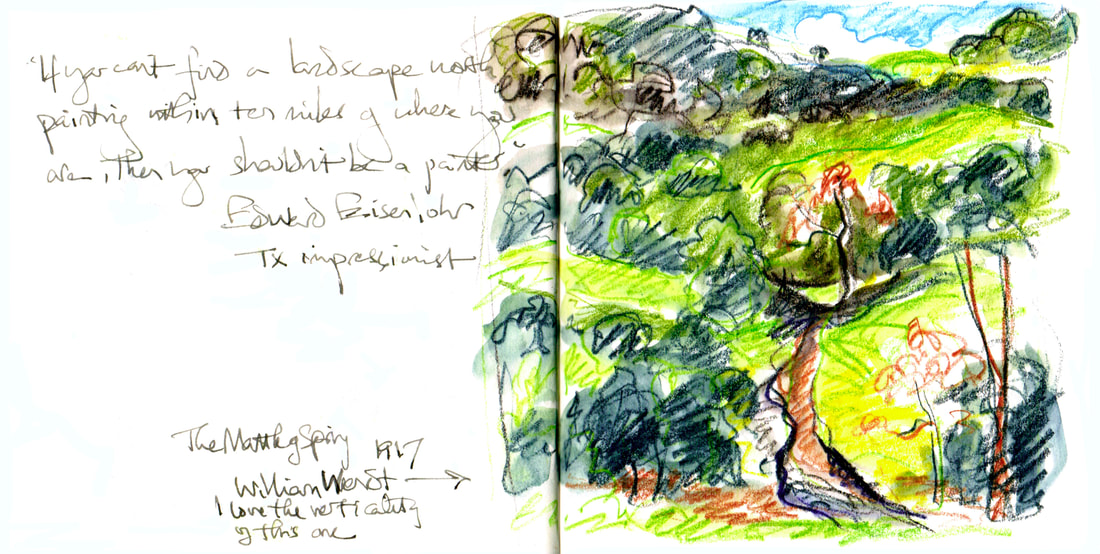 "If you can't find a landscape worth
painting within ten miles of where you
are, then you shouldn't be a painter".
Edward Eisenlohr
Tx impressionist
The Mantle of Spring 1917
William Wendt →
I love the verticality
of this one